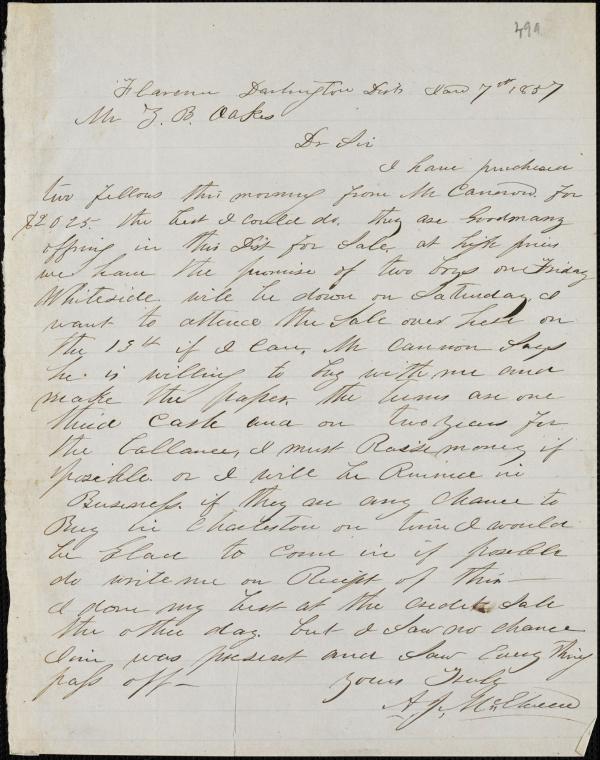 499
Florence Darlington Dist Nov 7th 1857
Mr Z. B. Oakes
Dr Sir
I have purchased
two fellows this morning from Mr Cannon. for
$2025. the best I could do. they are Goodmany
offring in this Dist for Sale. at high prices
we have the promise of two boys on Friday
Whiteside will be down on Saturday. I
want to attence the Sale over here on
the 13th if I can, Mr Cannon Says
he is willing to buy with me and
make the paper. the turms are one
third Cash and on two years for
the ballance, I must Raise money if
posible or I will be Ruined in
Business. if they an any chance to
Buy in Charleston on time I would
be Glad to Come in if posible
do write me on Reciept of this—
I done my best at the credit Sale
the other day. but I Saw no chance
was present and Saw Every thing
pass off—
yours Truly
A. J. McElveen